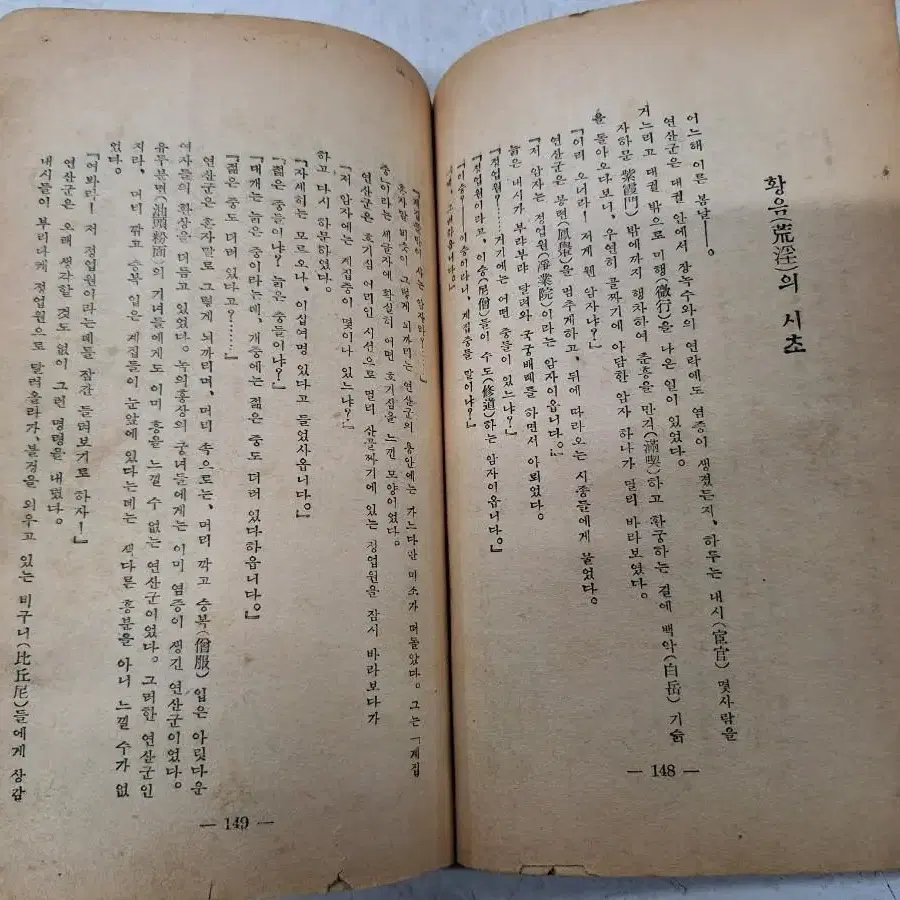 황음(荒淫)의 시초
어느해 이른 봄날——。
연산군은 대궐 안에서 장녹수와의 연락에도 염증이 생겼든지, 하루는 내시(宦官) 몇사람을
거느리고 대궐 밖으로 미행(微行)을 나온 일이 있었다。
자하문(紫霞門) 밖에까지 행차하여 춘흥을 만끽(滿喫)하고 환궁하는 길에 백악(白岳) 기슭
을 돌아오다보니, 우연히 골짜기에 아담한 암자 하나가 멀리 바라보였다。
『이리 오너라! 저게 웬 암자냐?』
연산군은 봉련(鳳輦)을 멈추게하고, 뒤에 따라오는 시종들에게 물었다。
『저 암자는 정업원(淨業院)이라는 암자이옵니다。』
늙은 내시가 부랴부랴 달려와 국궁배례를 하면서 아뢰었다。
『정업원?……거기에는 어떤 중들이 있느냐?』
『정업원이라고, 이승(尼僧)들이 수도(修道)하는 암자이옵니다。』
『이승?……이승이라니, 계집중들 말이냐?』
그러하옵니다。』
— 148 —
사는 암자라?……』
혼자말 비슷이 그렇게 뇌까리는 연산군의 용안에는 가느다란 미소가 떠돌았다。 그는 「계집
중」이라는 세글자에 확실히 어떤 호기심을 느낀 모양이었다。
연산군은 호기심 어린 시선으로 멀리 산골짜기에 있는 정업원을 잠시 바라보다가
『저 암자에는 계집중이 몇이나 있느냐?』
하고 다시 하문하였다。
『자세히는 모르오나, 이십여명 있다고 들었사옵니다。』
『젊은 중들이냐? 늙은 중들이냐?』
『대개는 늙은 중이라는데, 개중에는 젊은 중도 더러 있다하옵니다。』
『젊은 중도 더러 있다고?……』
연산군은 혼자말로 그렇게 뇌까리며, 머리 속으로는, 머리 깎고 승복(僧服) 입은 아릿다운
여자들의 환상을 더듬고 있었다。 녹의홍상의 궁녀들에게는 이미 염증이 생긴 연산군이었다。
유두분면(油頭粉面)의 기녀들에게도 이미 흥을 느낄 수 없는 연산군이었다。 그러한 연산군인
지라, 머리 깎고 승복 입은 계집들이 눈앞에 있다는데는 색다른 흥분을 아니 느낄 수가 없
었다。
『여봐라! 저 정업원이라는데를 잠간 들려보기로 하자!』
연산군은 오래 생각할 것도 없이 그런 명령을 내렸다。
내시들이 부리나케 정업원으로 달려올라가, 불경을 외우고 있는 비구니(比丘尼)들에게 상감
— 149 —